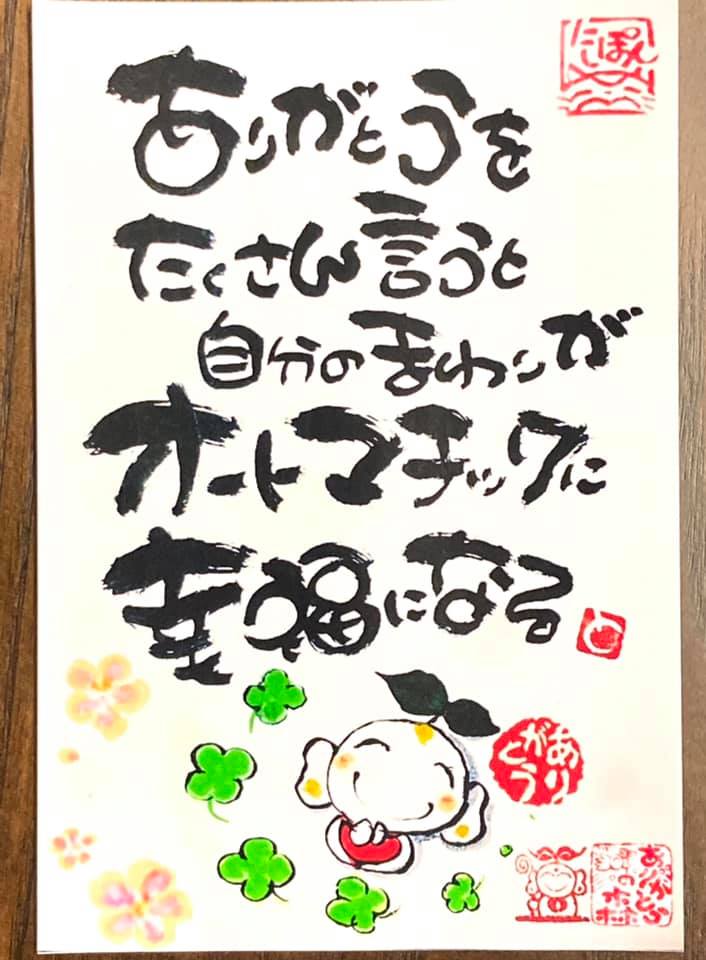 にっぽん
ありがとうを
たくさん言うと
自分のまわりが
オートマチックに
幸福になる
ありがとう
ありがとう
の森